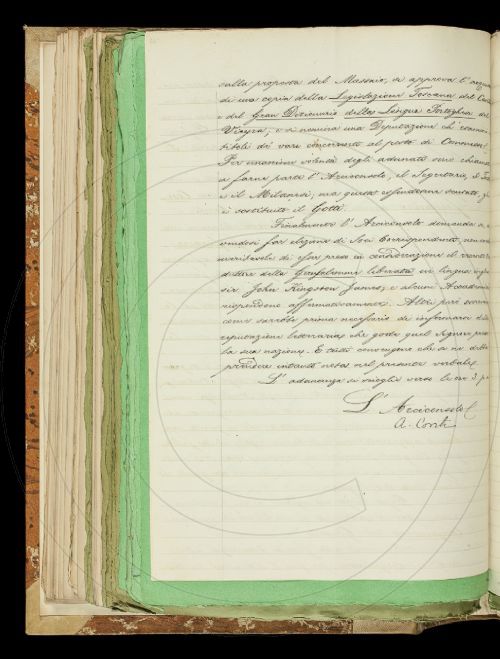 colla proposta del Massaio, si approva l'acqui
di una copia della Legislazione Toscana del Can
e del Gran Dizionario della Lingua Portoghese del
Vieyra, e si nomina una Deputazione ch'esamini
titoli dei vari concorrenti al posto di
Per unanime volontà degli adunati son chiamati
a formar parte l'Arciconsolo, il Segretario, il
e il Milanesi, ma questi essendosene scusato, gli
è sostituito il Gotti.
Finalmente l'Arciconsolo domanda a
vendosi far elezione di Soci Corrispondenti, non sare
meritevole di esser preso in considerazione il tradut
dittore della Gerusalemme liberata in lingua ingle
sir John Kingston James, e alcuni Accademi
rispondono affermativamente. Altri però osserva
come sarebbe prima necessario di informarsi della
reputazione letteraria che gode quel Signore presso
la sua nazione. E tutti convengono che se ne debba
prendere intanto nota nel presente verbale.
L'adunanza si scioglie verso le ore 3 po
L'Arciconsolo
A. Conti